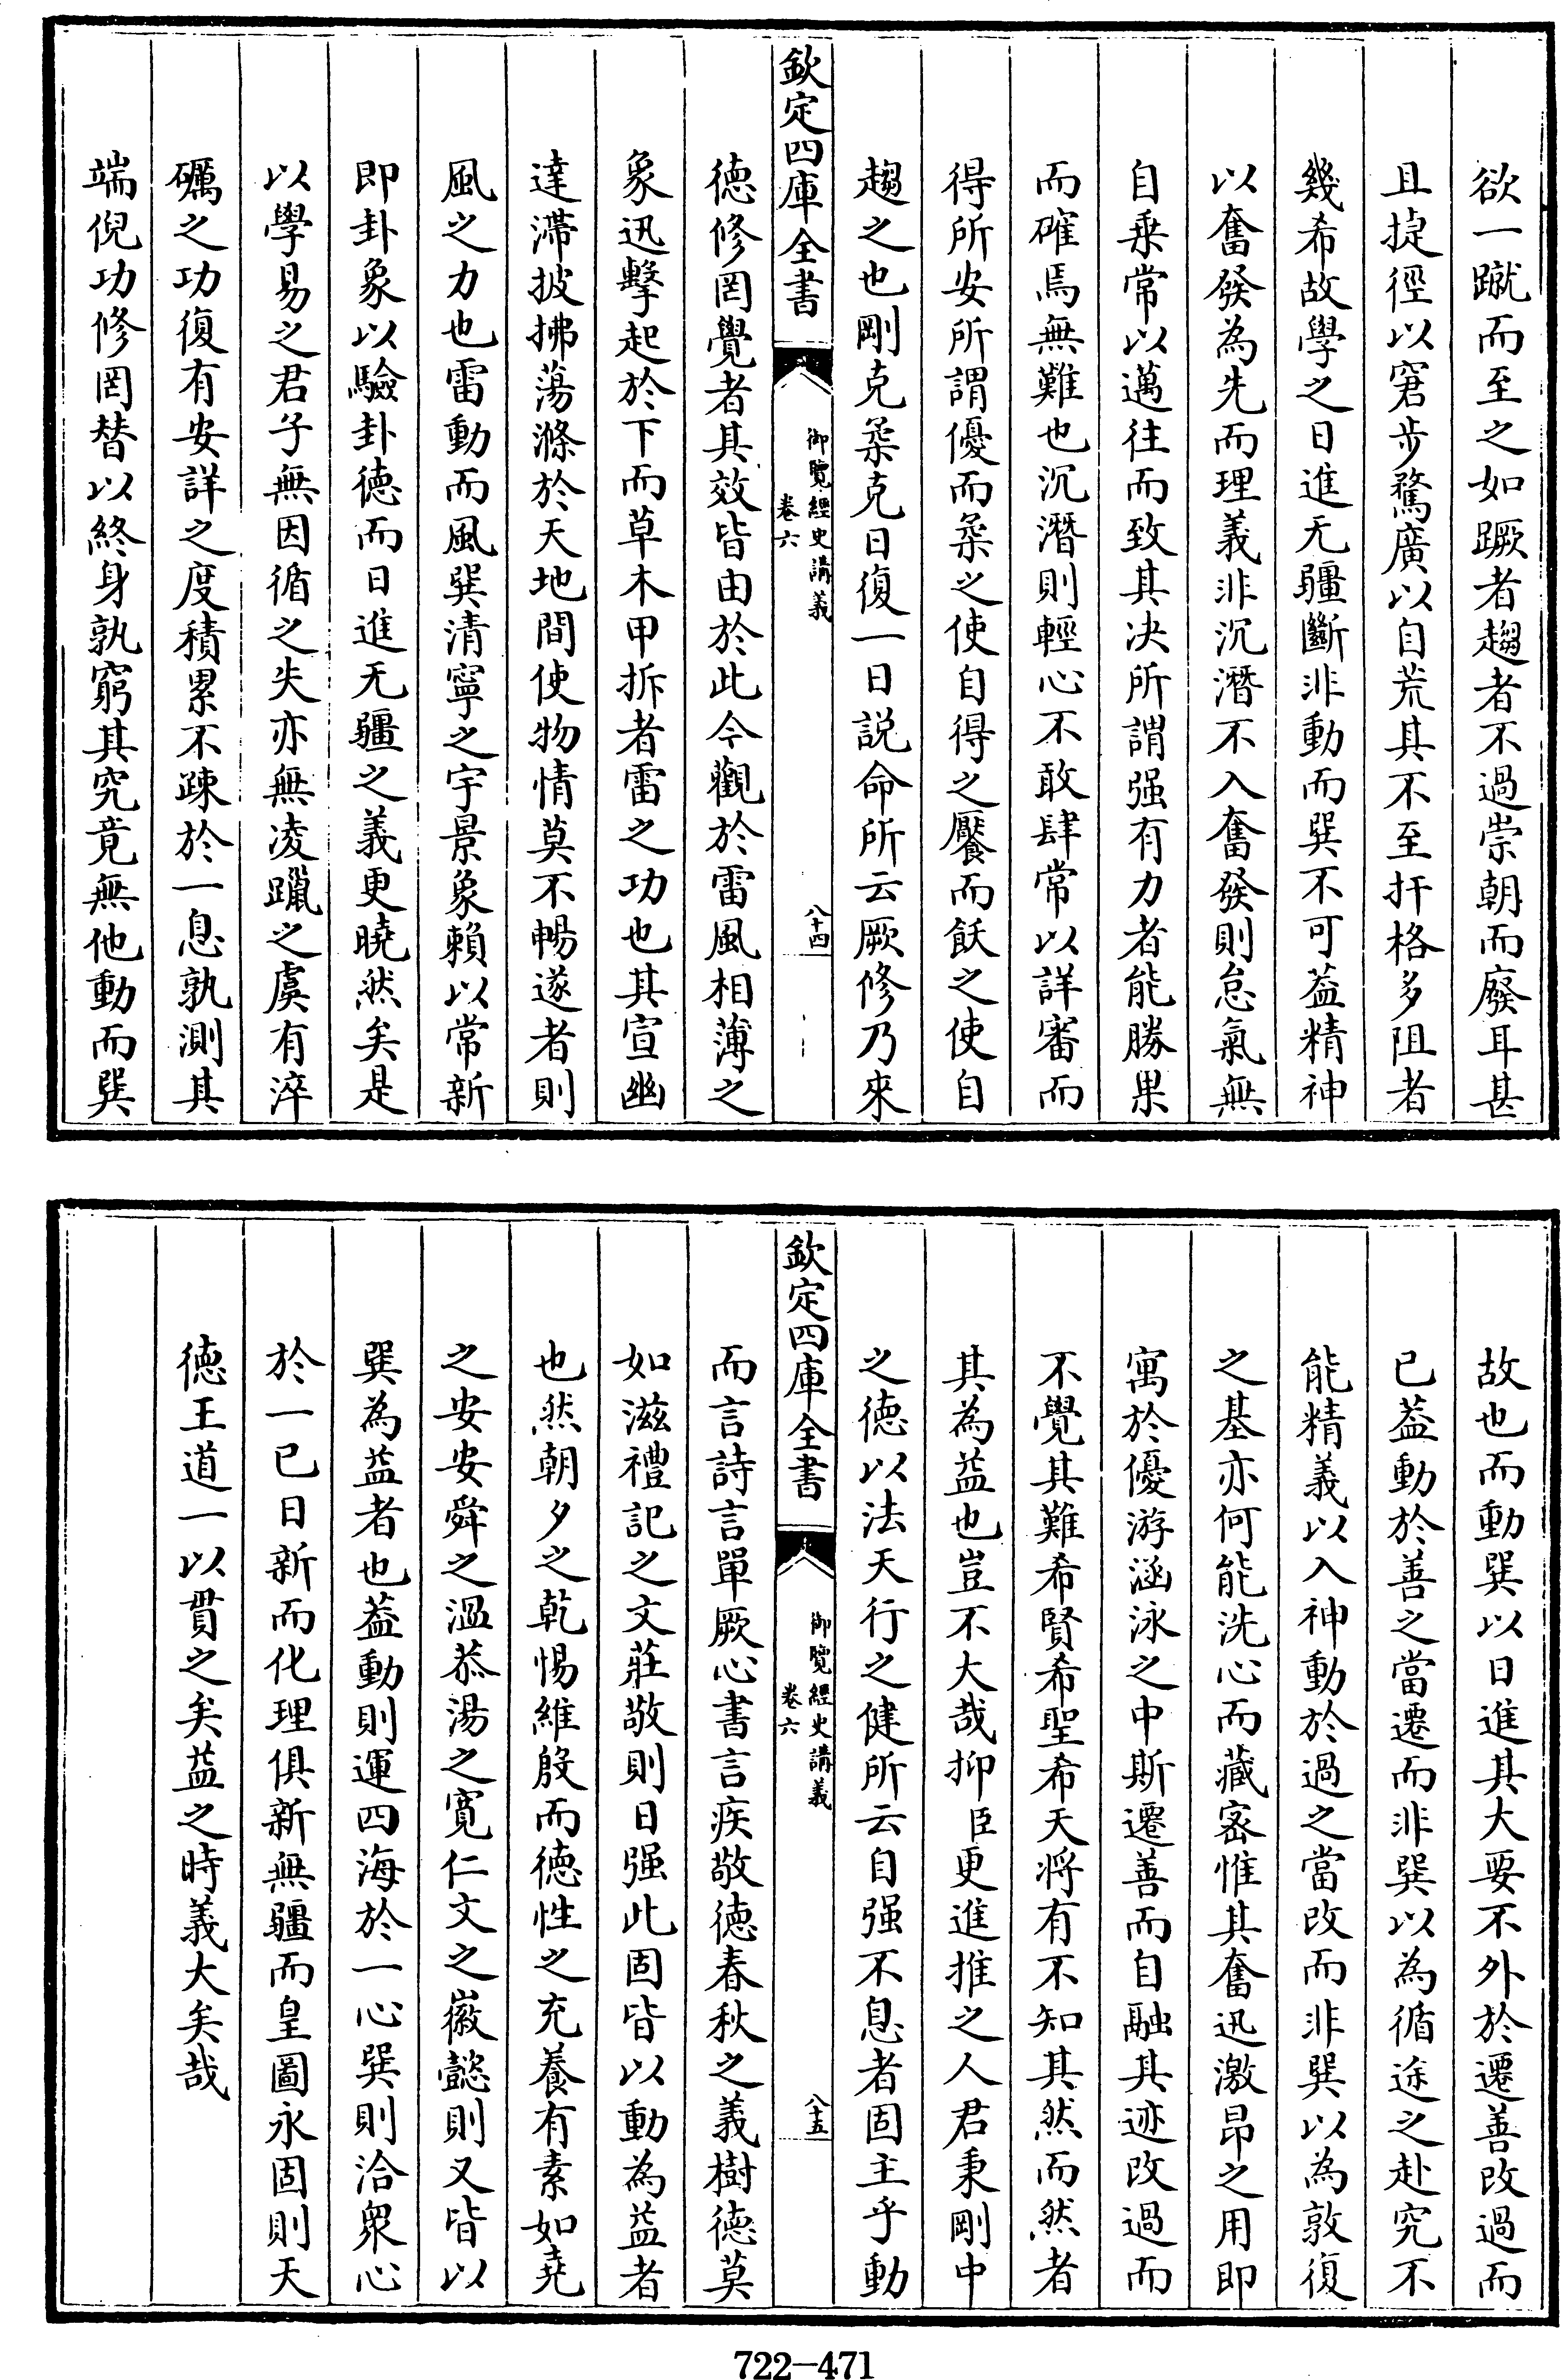 欲一蹴而至之如蹶者趨者不過崇朝而廢耳甚
且捷徑以窘步騖廣以自荒其不至扞格多阻者
幾希故學之日進无疆斷非動而巽不可蓋精神
以奮發為先而理義非沉潛不入奮發則怠氣無
自乗常以邁往而致其决所謂强有力者能勝果
而確焉無難也沉潛則輕心不敢肆常以詳審而
得所安所謂優而柔之使自得之饜而飫之使自
趨之也剛克柔克日復一日説命所云厥修乃來
欽定四庫全書
御覽經史講義
卷六
八十四
德修罔覺者其效皆由於此今觀於雷風相薄之
象迅擊起於下而草木甲拆者雷之功也其宣幽
達滯披拂蕩滌於天地間使物情莫不暢遂者則
風之力也雷動而風巽清寧之宇景象賴以常新
即卦象以驗卦德而日進无疆之義更曉然矣是
以學易之君子無因循之失亦無凌躐之虞有淬
礪之功復有安詳之度積累不疎於一息孰測其
端倪功修罔替以終身孰窮其究竟無他動而巽
故也而動巽以日進其大要不外於遷善改過而
已蓋動於善之當遷而非巽以為循途之赴究不
能精義以入神動於過之當改而非巽以為敦復
之基亦何能洗心而藏密惟其奮迅激昂之用即
寓於優游涵泳之中斯遷善而自融其迹改過而
不覺其難希賢希聖希天將有不知其然而然者
其為益也豈不大哉抑臣更進推之人君秉剛中
之德以法天行之健所云自强不息者固主乎動
欽定四庫全書
御覽經史講義
卷六
八十五
而言詩言單厥心書言疾敬德春秋之義樹德莫
如滋禮記之文莊敬則日强此固皆以動為益者
也然朝夕之乾惕維殷而德性之充養有素如堯
之安安舜之溫恭湯之寛仁文之徽懿則又皆以
巽為益者也蓋動則運四海於一心巽則洽衆心
於一已日新而化理俱新無疆而皇圖永固則天
德王道一以貫之矣益之時義大矣哉
722—471